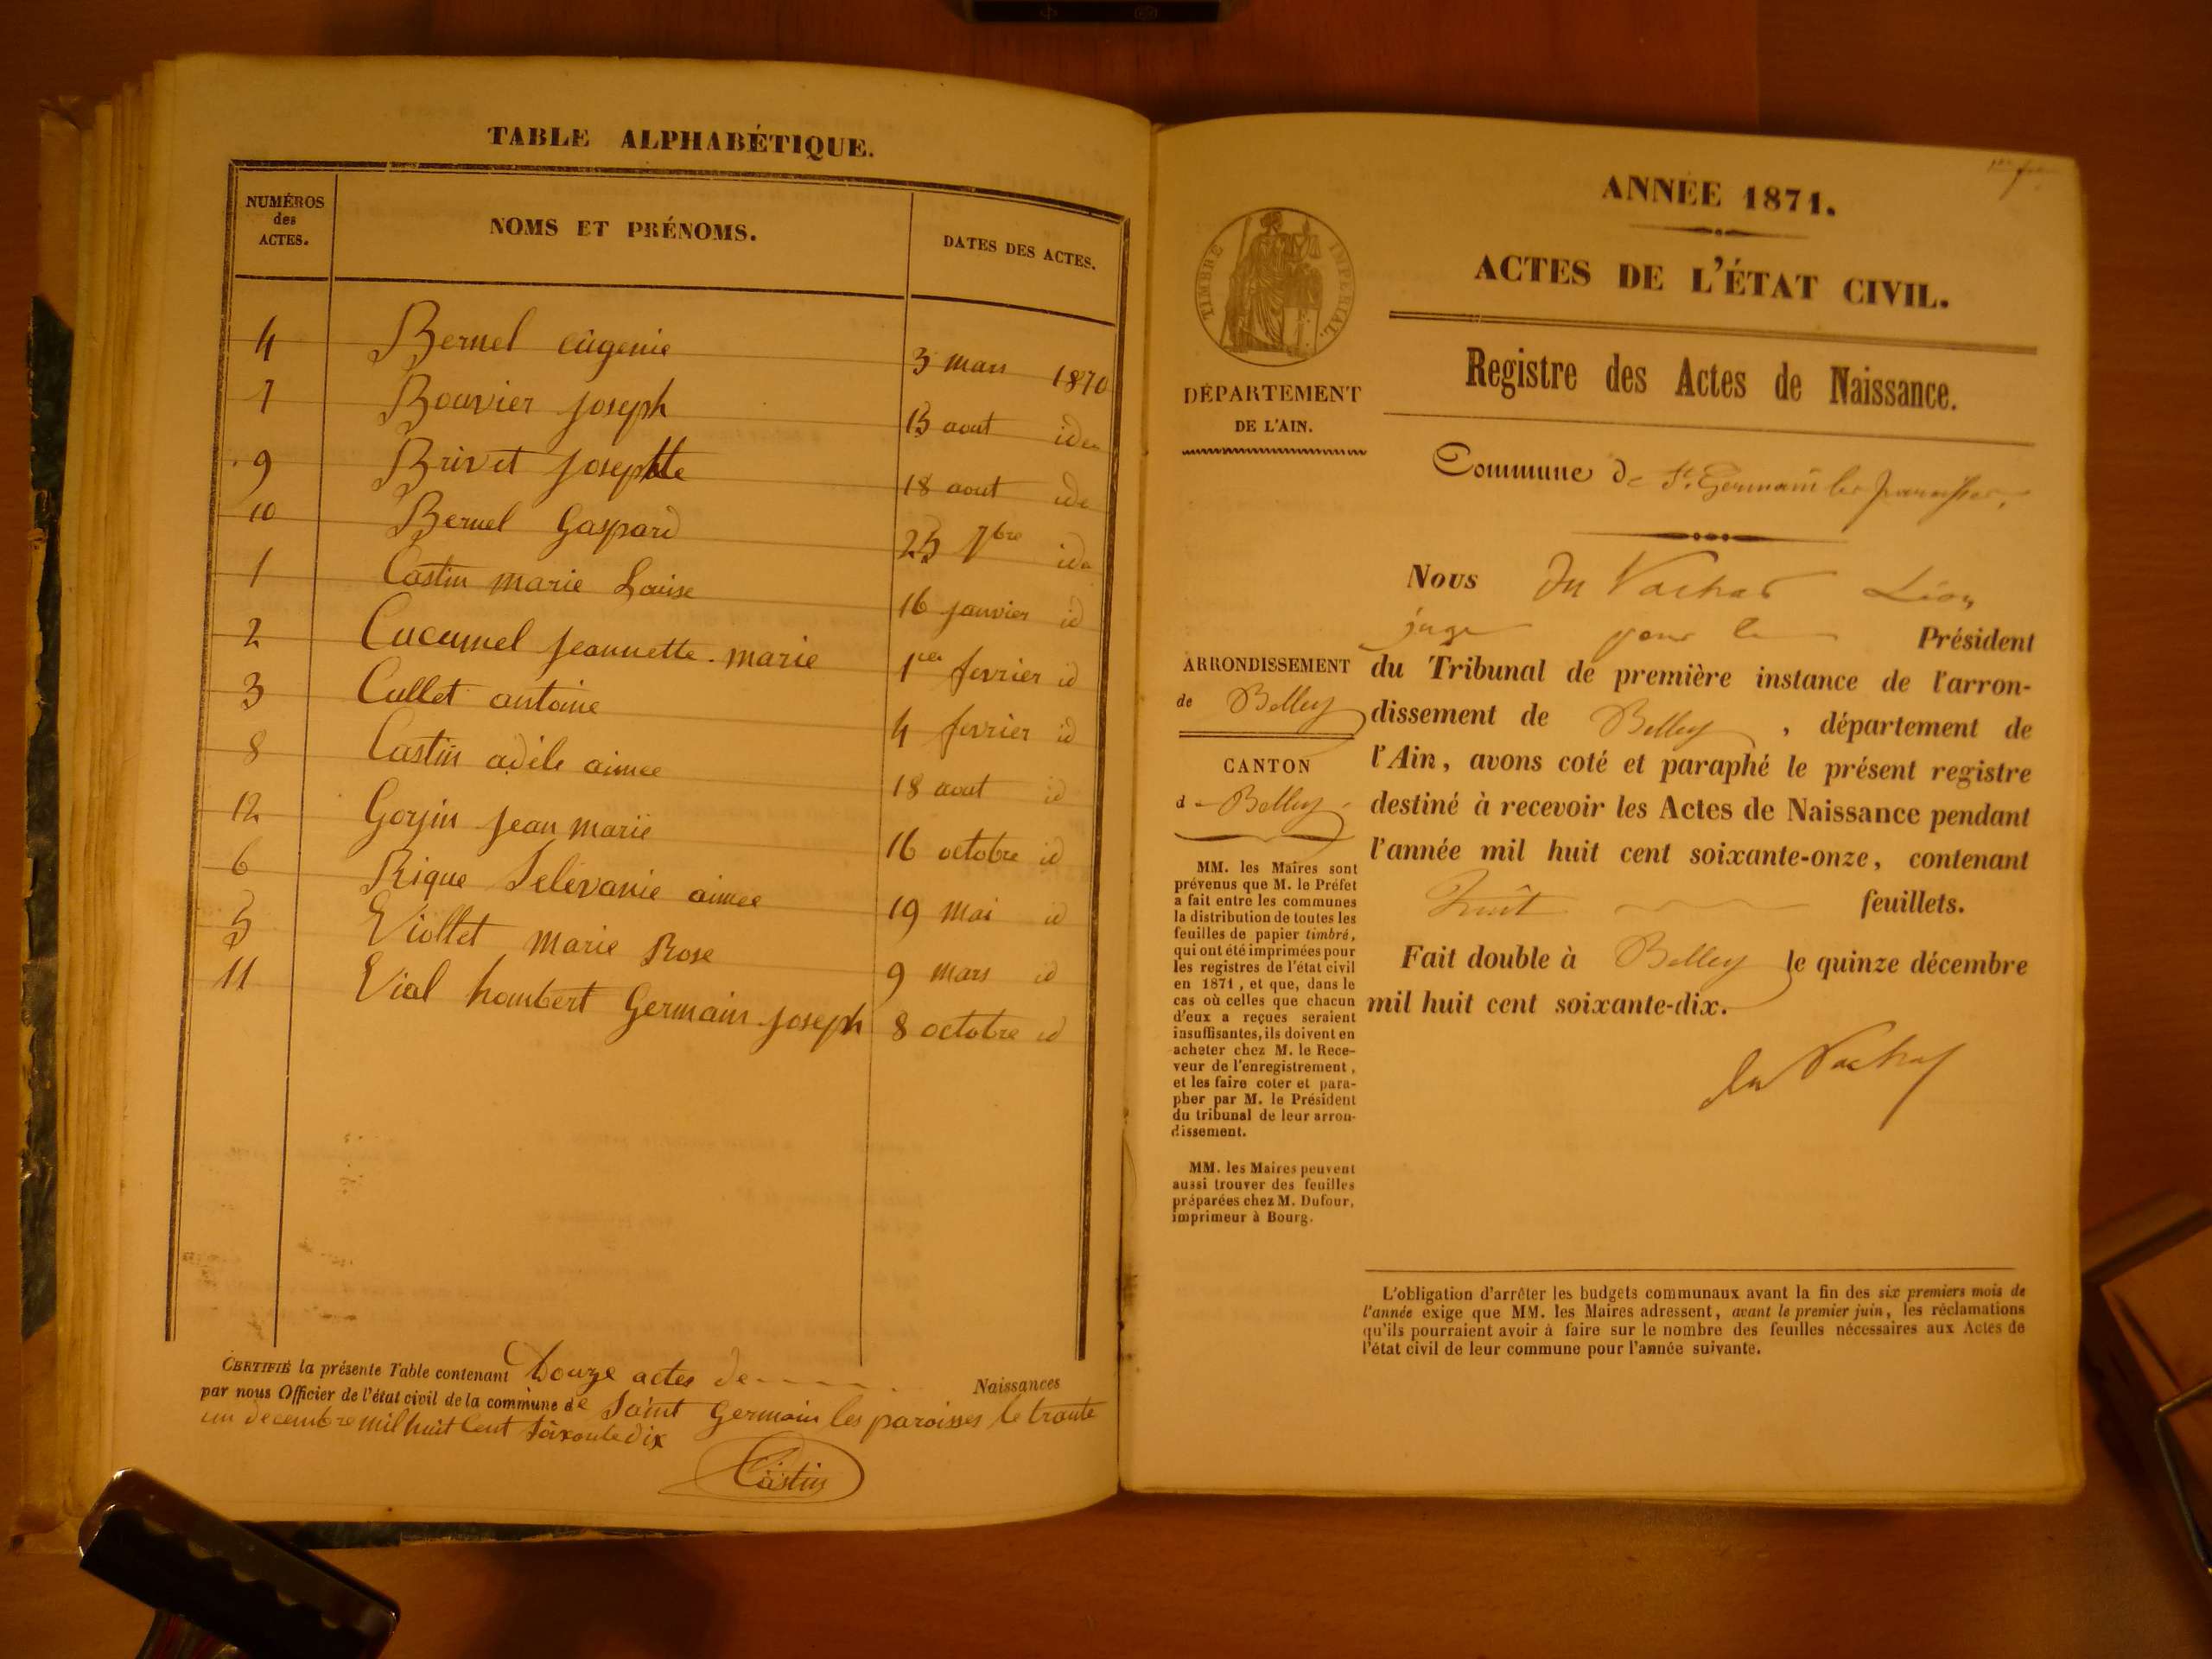 TABLE ALPHABÉTIQUE.
NUMÉROS des ACTES. NOMS ET PRÉNOMS. DATES DES ACTES.
4 Bernel eùgenie 3 mars 1870
7 Bouvier joseph 15 aout iden
9 Brivet josephte 18 aout ide
10 Bernel Gaspard 25 7bre ide
1 Castin marie Louise 16 janvier id
2 Cucumel jeannette. marie 1er fevrier id
3 Cullet antoine 4 fevrier id
8 Castin adèle aimee 18 aout id
12 Gojin jean marie 16 octobre id
6 Rique Selevanie aimee 19 mai id
5 Viollet marie Rose 9 mars id
11 Vial humbert Germain joseph 8 octobre id
CERTIFIÉ la présente Table contenant Douze actes de Naissances
par nous Officier de l'état civil de la commune de Saint Germain les paroisses le trante
un decembre mil huit Cent Soixante dix
Castin
ANNÉE 1871.
ACTES DE L'ÉTAT CIVIL.
TIMBRE IMPÉRIAL.
Registre des Actes de Naissance.
DÉPARTEMENT
DE L'AIN.
Commune de St. Germain les paroisses,
Nous Du Vachat Léon
juge pour le Président
du Tribunal de première instance de l'arron-
dissement de Belley, département de
l'Ain, avons coté et paraphé le présent registre
destiné à recevoir les Actes de Naissance pendant
l'année mil huit cent soixante-onze, contenant
huit feuillets.
Fait double à Belley le quinze décembre
mil huit cent soixante-dix.
Du Vachat
ARRONDISSEMENT
de Belley
CANTON
d Belley
MM. les Maires sont
prévenus que M. le Préfet
a fait entre les communes
la distribution de toutes les
feuilles de papier timbré,
qui ont été imprimées pour
les registres de l'état civil
en 1871, et que, dans le
cas où celles que chacun
d'eux a reçues seraient
insuffisantes, ils doivent en
acheter chez M. le Rece-
veur de l'enregistrement,
et les faire coter et para-
pher par M. le Président
du tribunal de leur arron-
dissement.
MM. les Maires peuvent
aussi trouver des feuilles
préparées chez M. Dufour,
imprimeur à Bourg.
L'obligation d'arrêter les budgets communaux avant la fin des six premiers mois de
l'année exige que MM. les Maires adressent, avant le premier juin, les réclamations
qu'ils pourraient avoir à faire sur le nombre des feuilles nécessaires aux Actes de
l'état civil de leur commune pour l'année suivante.